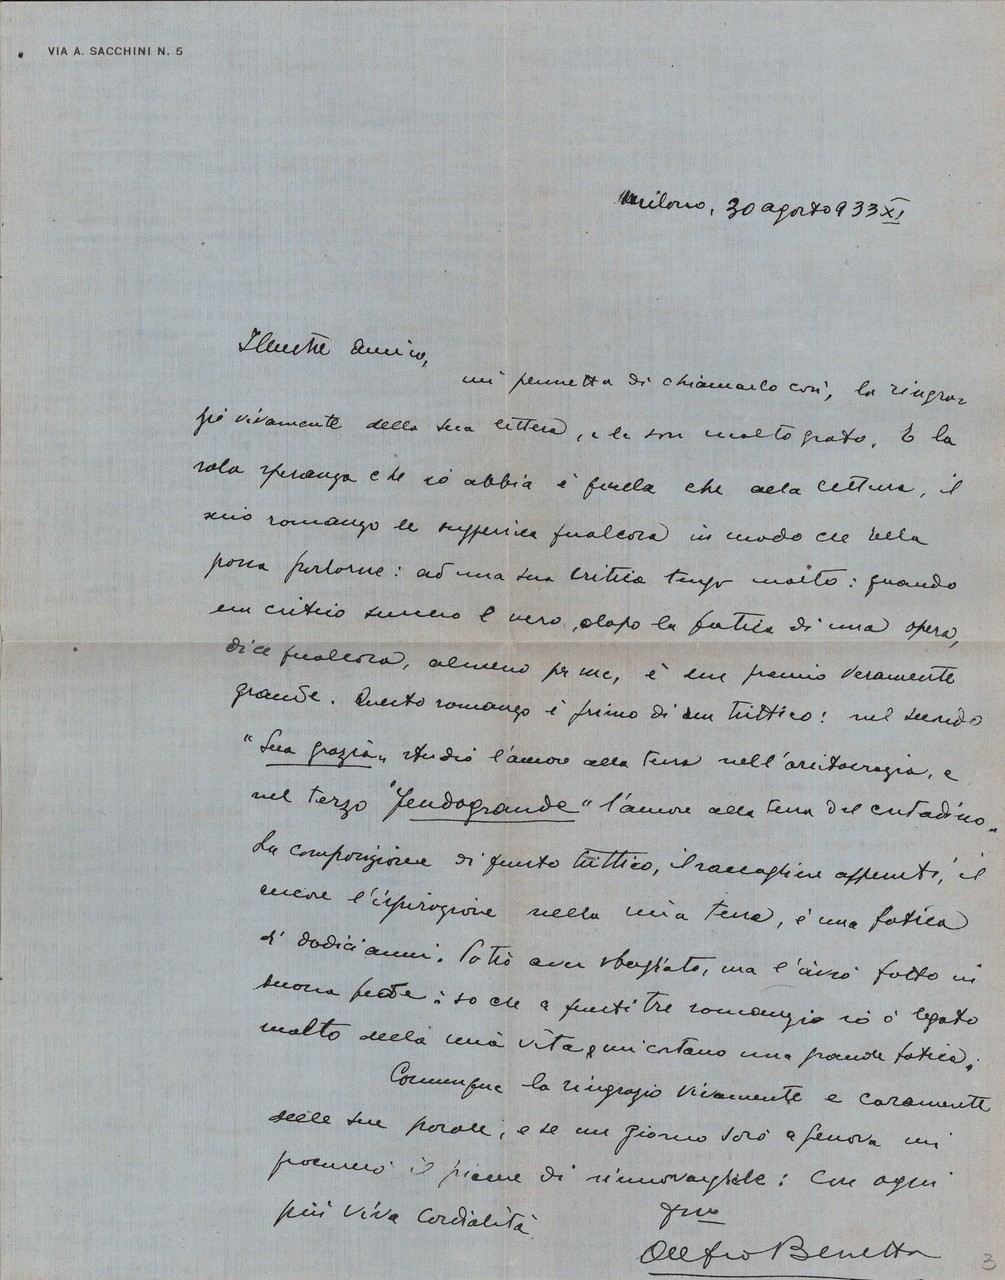 VIA A. SACCHINI N. 5
Milano, 30 agosto 933 XI
Illustre Amico,
mi permetta di chiamarlo così, la ringra-
zio vivamente della sua lettera, e le son molto grato. E la
sola speranza che io abbia è quella che alla lettura, il
mio romanzo le suggerisca qualcosa in modo che ella
possa parlarne: ad una sua critica tengo molto: quando
un critico sincero e vero, dopo la fatica di una opera,
dice qualcosa, almeno per me, è un premio veramente
grande. Questo romanzo è primo di un trittico: nel secondo
"Sua grazia" studio l'amore alla terra nell'aristocrazia, e
nel terzo "Feudogrande" l'amore alla terra del contadino.
La composizione di questo trittico, il raccogliere appunti, il
l'ispirazione nella mia terra, è una fatica
di dodici anni. Potrò aver sbagliato, ma l'avrò fatto in
buona fede: so che a questi tre romanzi io ò legato
molto della mia vita e mi costano una grande fatica.
Comunque la ringrazio vivamente e caramente
delle sue parole, e se un giorno sarò a Genova mi
procurerò il piacere di rinnovargliele: con ogni
più viva cordialità
suo
Alfio Beretta
3